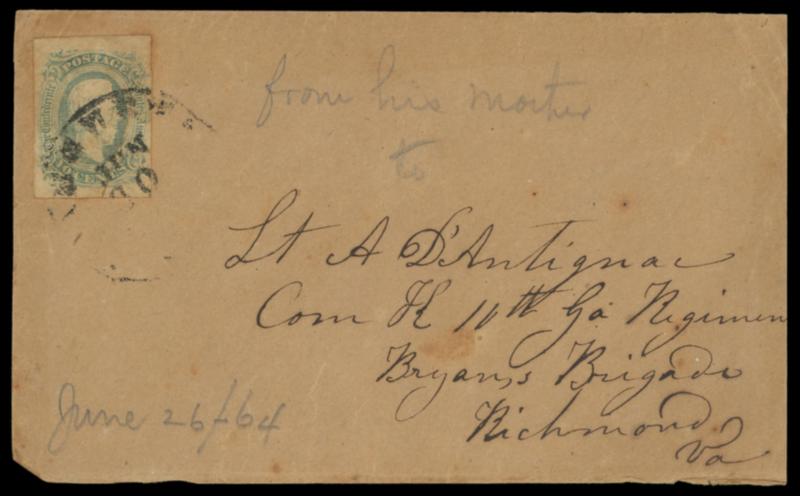 POSTAGE
TEN CENTS
from his mother
to
Lt A D'Antignac
Com K 10th Ga Regimen
Bryans Brigade
Richmond
Va
June 26/-64